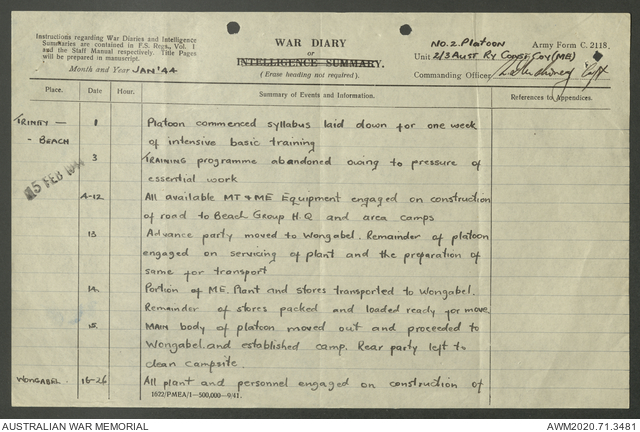 Instructions regarding War Diaries and Intelligence
Summaries are contained in F.S. Regs., Vol. 1
and the Staff Manual respectively. Title Pages
will be prepared in manuscript.
Month and Year JAN '44
WAR DIARY
OR
INTELLIGENCE SUMMARY.
(Erase heading not required).
No.2. Platoon Army Form C. 2118.
Unit 2/3 Aust Ry Const Coy (ME)
Commanding Officer Capt
Place. Date Hour. Summary of Events and Information. References to Appendices.
TRINITY — 1 Platoon commenced syllabus laid down for one week
- BEACH of intensive basic training
3 TRAINING programme abandoned owing to pressure of
essential work
15 FEB 1944
4-12 All available MT & ME Equipment engaged on construction
of road to Beach Group H.Q and area camps
13 Advance party moved to Wongabel. Remainder of platoon
engaged on servicing of plant and the preparation of
same for transport
14 Portion of M.E. Plant and stores transported to Wongabel.
Remainder of stores packed and loaded ready for move.
15. MAIN body of platoon moved out and proceeded to
Wongabel and established camp. Rear party left to
clean campsite.
WONGABEL. 16-26 All plant and personnel engaged on construction of
1622/PMEA/1—500,000—9/41.
AUSTRALIAN WAR MEMORIAL AWM2020.71.3481